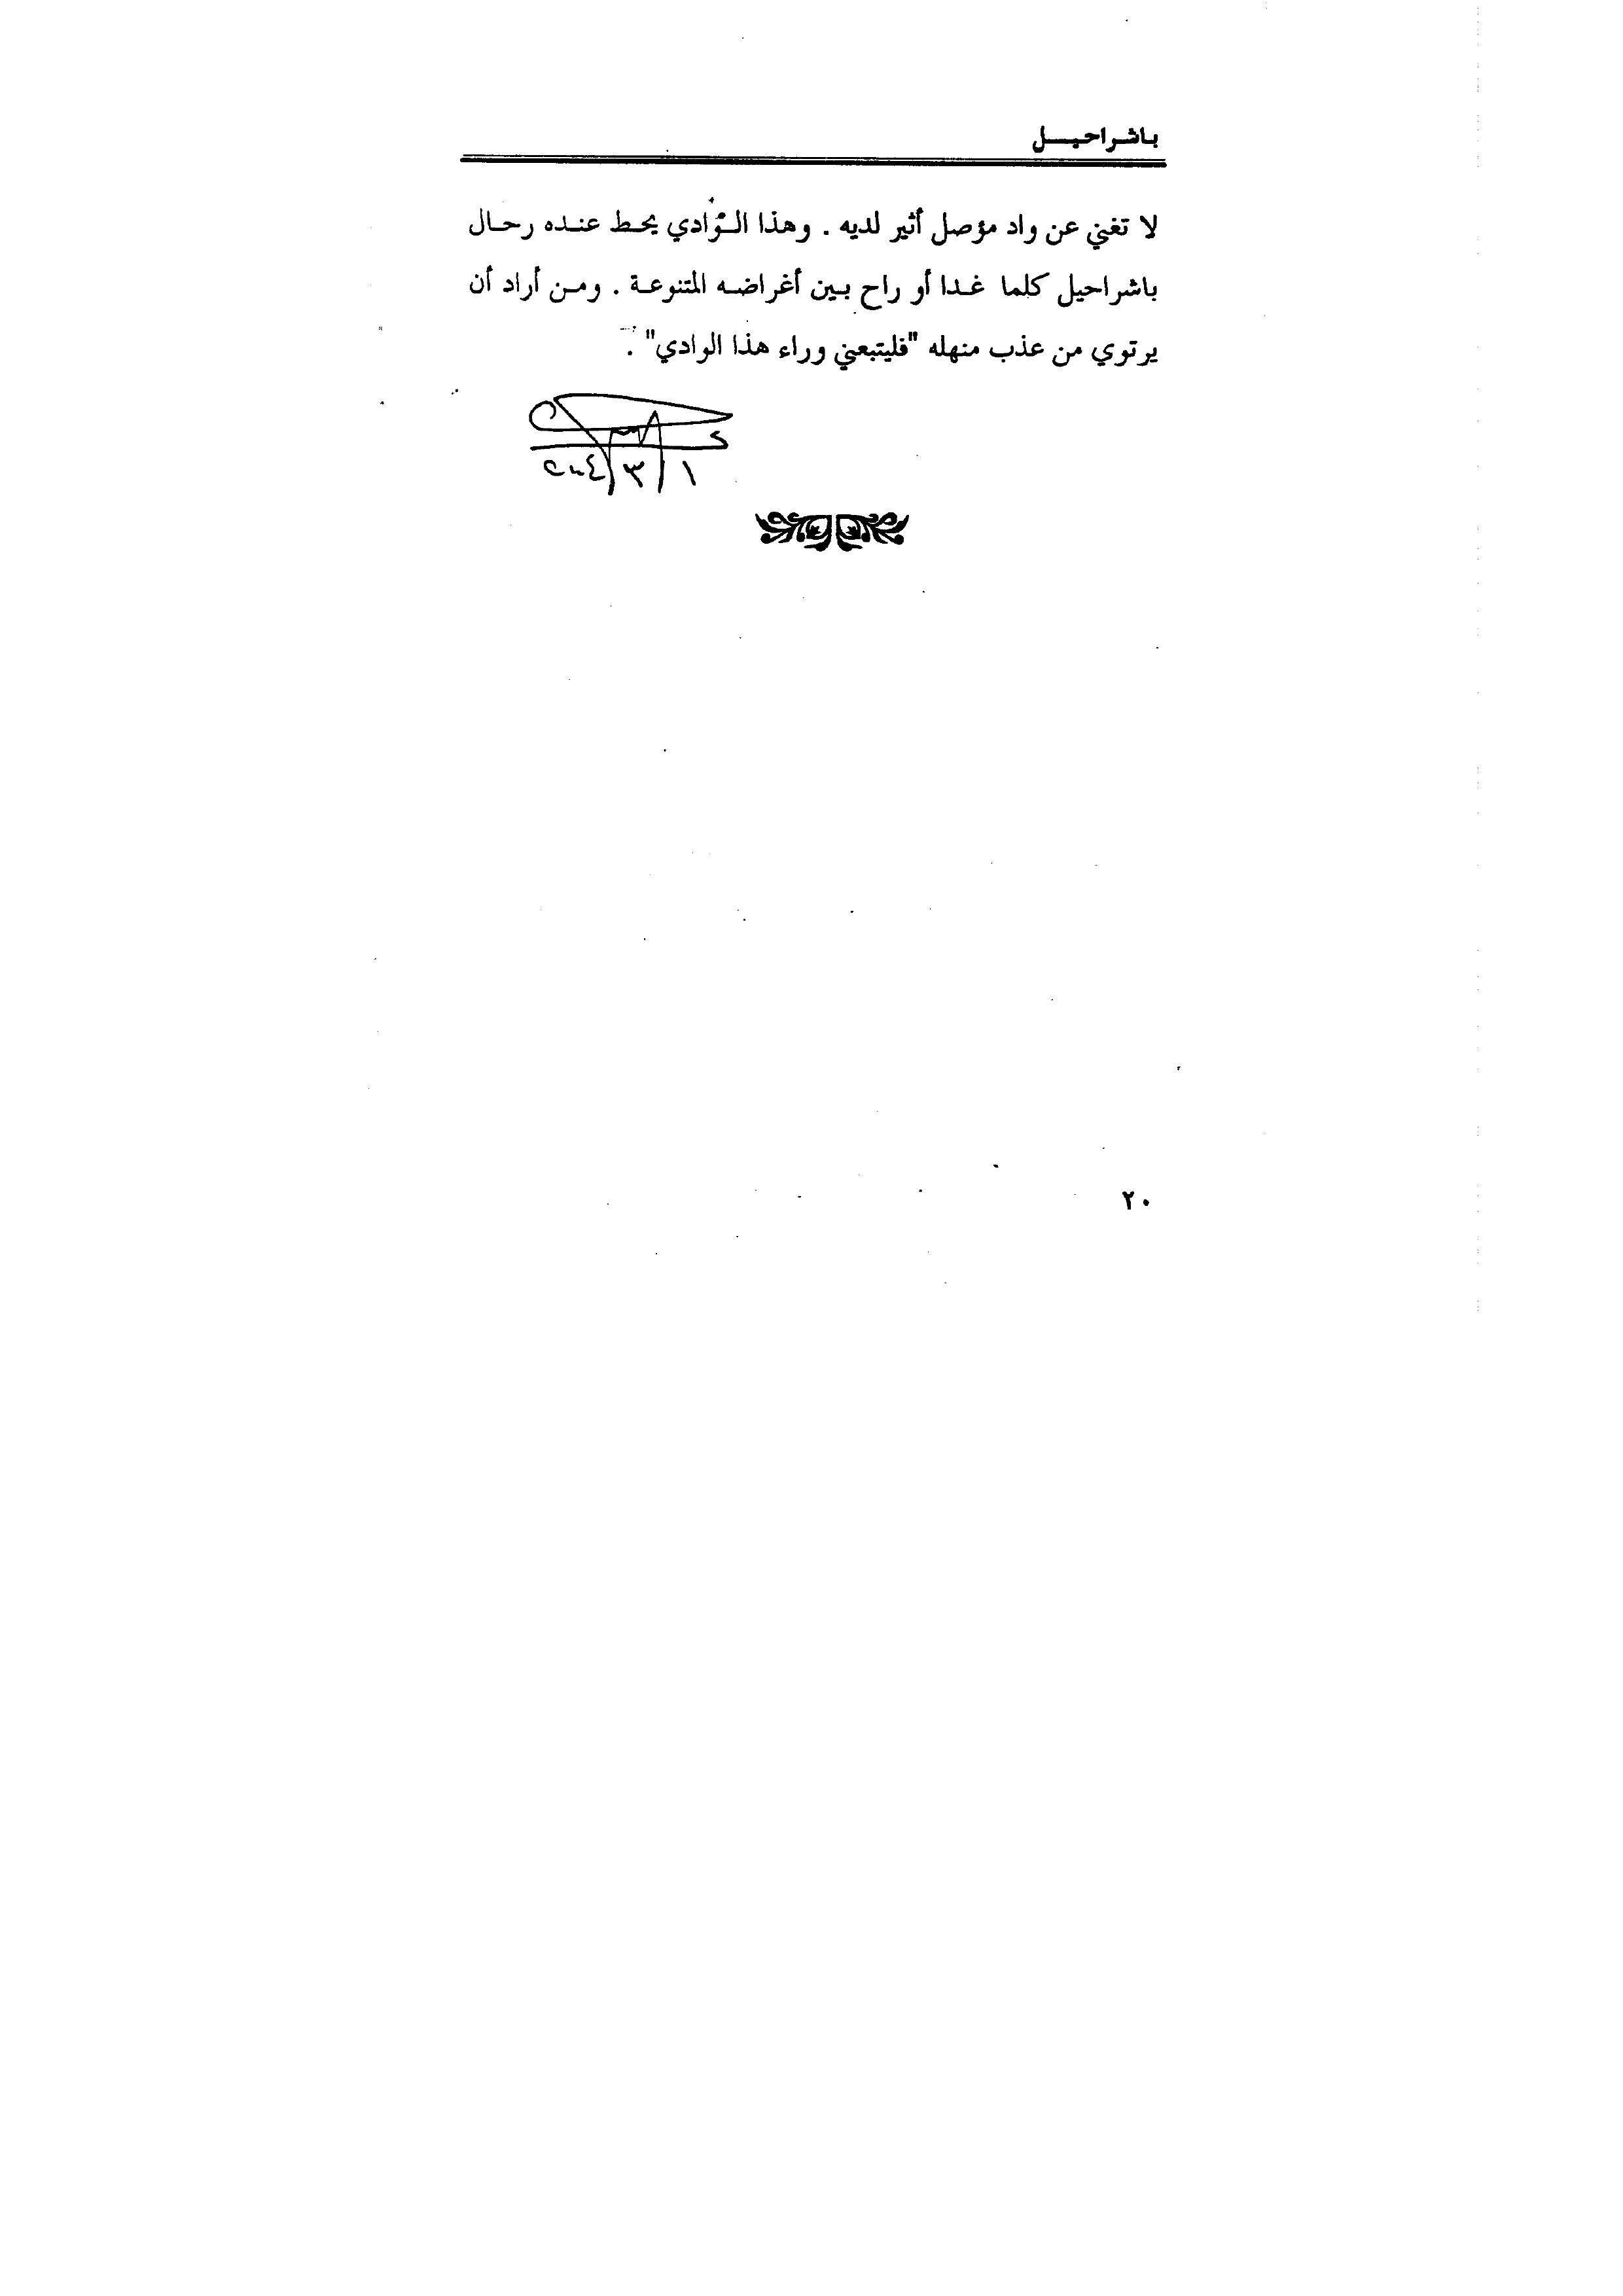 باشراحيل
لا تغني عن واد مؤصل أثير لديه . وهذا الوادي يحط عنده رحال
باشراحيل كلما غدا أو راح بين أغراضه المتنوعة . ومن أراد أن
يرتوي من عذب منهله "فليتبعني وراء هذا الوادي" .
١/٣/٢٠٠٤
٢٠